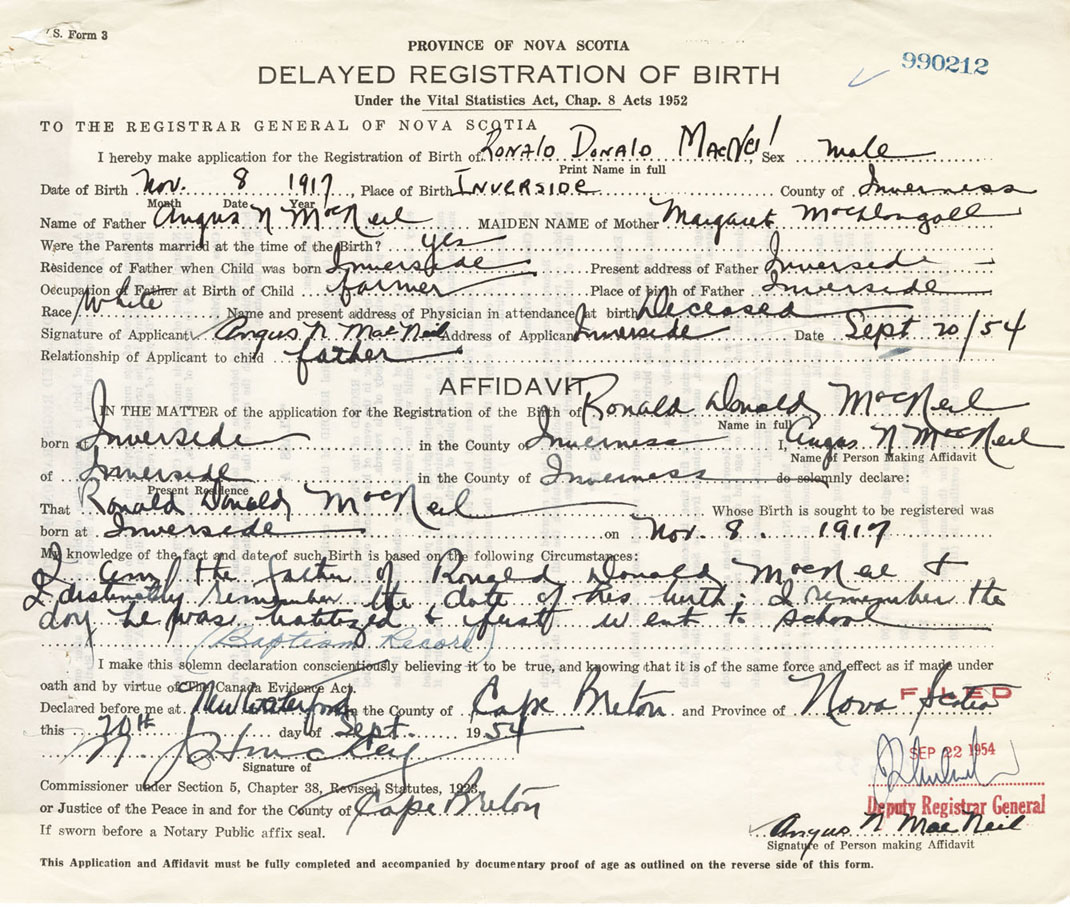 V.S. Form 3
PROVINCE OF NOVA SCOTIA
990212
DELAYED REGISTRATION OF BIRTH
Under the Vital Statistics Act, Chap. 8 Acts 1952
TO THE REGISTRAR GENERAL OF NOVA SCOTIA
I hereby make application for the Registration of Birth of RONALD DONALD MACNEIL, Sex male
Print Name in full
Date of Birth Nov. 8 1917, Place of Birth INVERSIDE County of Inverness
Month Date Year
Name of Father Angus N MacNeil MAIDEN NAME of Mother Margaret MacDougall
Were the Parents married at the time of the Birth? yes
Residence of Father when Child was born Inverside Present address of Father Inverside
Occupation of Father at Birth of Child farmer Place of birth of Father Inverside
Race White Name and present address of Physician in attendance at birth Deceased
Signature of Applicant Angus N MacNeil Address of Applicant Inverside Date Sept 20/54
Relationship of Applicant to child father
AFFIDAVIT
IN THE MATTER of the application for the Registration of the Birth of Ronald Donald MacNeil
Name in full
born at Inverside in the County of Inverness I, Angus N MacNeil
Name of Person Making Affidavit
of Inverside in the County of Inverness do solemnly declare:
Present Residence
That Ronald Donald MacNeil Whose Birth is sought to be registered was
born at Inverside on Nov. 8. 1917
My knowledge of the fact and date of such Birth is based on the following Circumstances:
I am the father of Ronald Donald MacNeil &
I distinctly remember the date of his birth; I remember the
day he was baptized & first went to school
(Baptism Record)
I make this solemn declaration conscientiously believing it to be true, and knowing that it is of the same force and effect as if made under
oath and by virtue of The Canada Evidence Act.
Declared before me at New Waterford in the County of Cape Breton and Province of Nova Scotia
FILED
this 20th day of Sept. 1954
SEP 22 1954
Signature of
Commissioner under Section 5, Chapter 38, Revised Statutes, 1923
or Justice of the Peace in and for the County of Cape Breton
Deputy Registrar General
Angus N MacNeil
If sworn before a Notary Public affix seal.
Signature of Person making Affidavit
This Application and Affidavit must be fully completed and accompanied by documentary proof of age as outlined on the reverse side of this form.